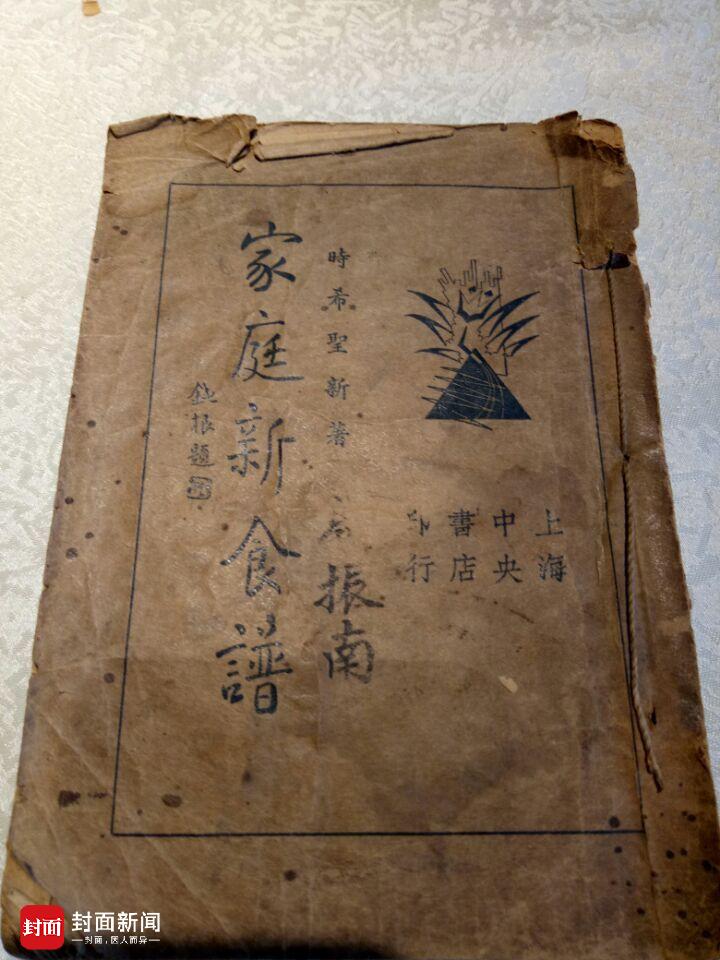 上海
中央
書店
印行
時希聖新著
振南
家庭新食譜
鈍根題
封面
封面新闻
封面，医人而异